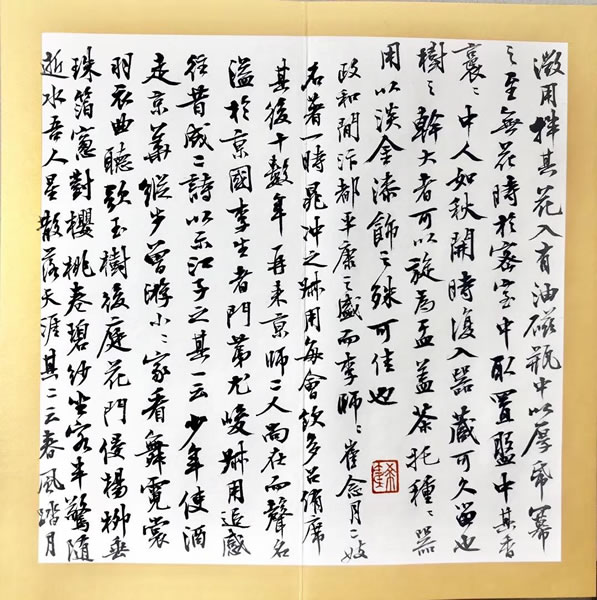 微用拌其花入有油磁瓶中以厚帋冪
之至無花時於密室中取置盤中其香
裛〻中人如秋開時復入器藏可久留也
樹之幹大者可以旋為盂盖茶托種〻器
用以淡金漆飾之殊可佳也
政和間汴都平康之盛而李師〻崔念月二妓
名著一時晁沖之叔用每會飲多召侑席
其後十數年再來京師二人尚在而聲名
溢於京國李生者門第尤峻叔用追感
往昔成二詩以示江子之其一云少年使酒
走京華縱步曾游小〻家看舞霓裳
羽衣曲聽歌玉樹後庭花門侵楊柳垂
珠箔窓對櫻桃卷碧紗坐客半驚隨
逝水吾人星散落天涯其二云春風踏月